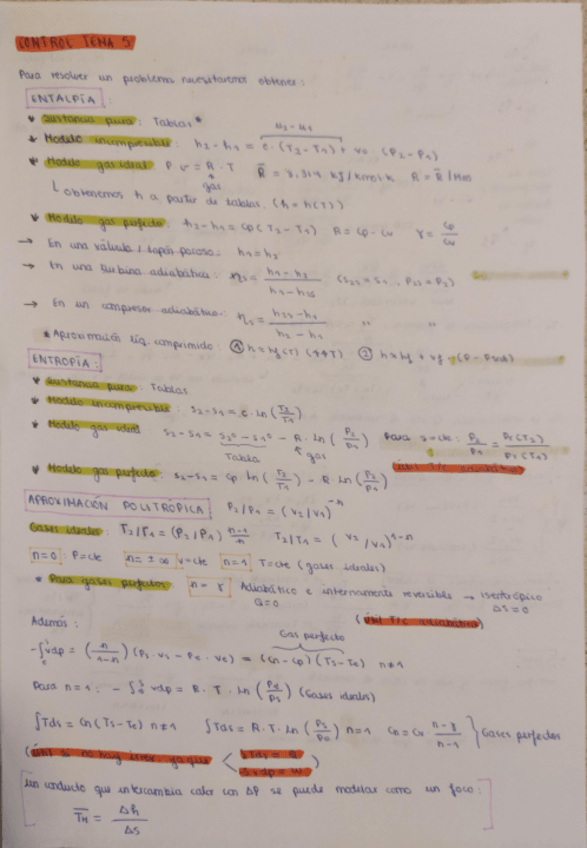 CONTROL TEMA 5
Para resolver un problema necesitaremos obtener:
ENTALPÍA:
Sustancia pura: Tablas *
u₂-u₁
Modelo incompresible: h₂-h₁ = c·(T₂-T₁) + v₀·(P₂-P₁)
Modelo gas ideal P·v = R·T R̅ = 8,314 kJ/kmol·K R = R̅/Mm
gas
└ obtenemos h a partir de tablas. (h = h(T))
Modelo gas perfecto: h₂-h₁ = cp(T₂-T₁) R = cp-cv γ = cp/cv
→ En una válvula / tapón poroso: h₁ = h₂
→ En una turbina adiabática: ηs = (h₁-h₂)/(h₁-h₂s) (s₂s = s₁, P₂s = P₂)
→ En un compresor adiabático: ηs = (h₂s-h₁)/(h₂-h₁) " "
* Aproximación líq. comprimido: ① h≈hf(T) (↑↑T) ② h≈hf + vf·(P-Psat)
ENTROPÍA:
Sustancia pura: Tablas
Modelo incompresible: s₂-s₁ = c·ln(T₂/T₁)
Modelo gas ideal: s₂-s₁ = s₂⁰-s₁⁰ - R·ln(P₂/P₁) Para s=cte: P₂/P₁ = Pr(T₂)/Pr(T₁)
Tabla gas (útil T/C adiabático)
Modelo gas perfecto: s₂-s₁ = cp ln(T₂/T₁) - R·ln(P₂/P₁)
APROXIMACIÓN POLITRÓPICA P₂/P₁ = (v₂/v₁)⁻ⁿ
Gases ideales: T₂/T₁ = (P₂/P₁) (n-1)/n T₂/T₁ = (v₂/v₁)¹⁻ⁿ
n=0: P=cte n=±∞ v=cte n=1 T=cte (gases ideales)
* Para gases perfectos: n=γ Adiabático e internamente reversible → isentrópico
Q=0 ΔS=0
(útil T/C adiabático)
Además:
Gas perfecto
-∫vdp = (n/(1-n)) (Ps·vs - Pe·ve) = (cn-cp)(Ts-Te) n≠1
Para n=1: -∫vdp = R·T·ln(Pe/Ps) (Gases ideales)
∫Tds = cn(Ts-Te) n≠1 ∫Tds = R·T·ln(Ps/Pe) n=1 cn = cv·(n-γ)/(n-1) } Gases perfectos
(útil si no hay irrev. ya que < ∫Tds = Q
-∫vdp = W)
[Un conducto que intercambia calor con ΔP se puede modelar como un foco:
T̅H = Δh/Δs]